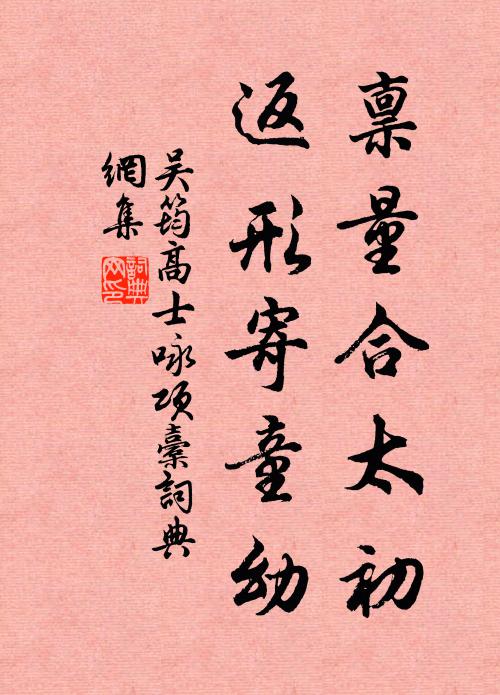 禀量合太初
返形寄童幼
吴筠高士咏项橐詞典
網集
詞典網印